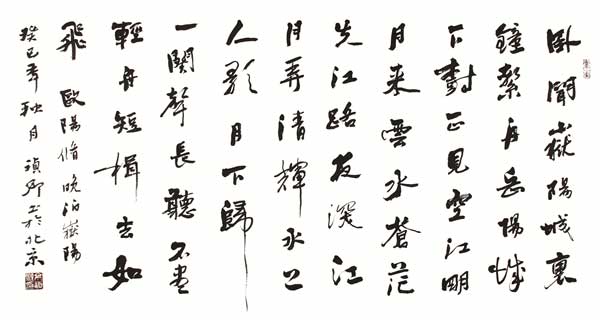 臥聞嶽陽城裏
鐘繫舟岳陽城
下樹正見空江明
月來雲水蒼茫
失江路夜深江
月弄清輝水上
人歌月下歸
一闋聲長聽不盡
輕舟短楫去如
飛 歐陽脩晚泊嶽陽
癸巳年秋月禎卿书於北京